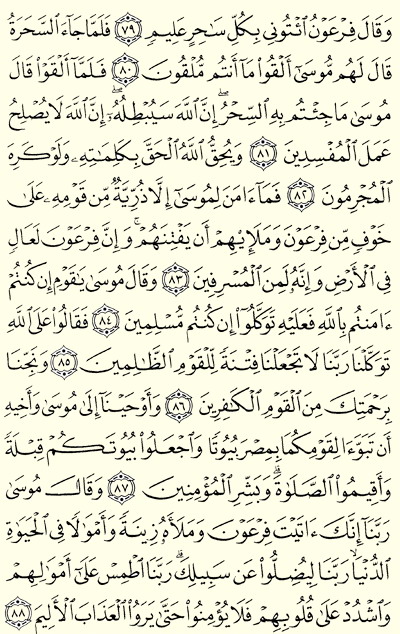 وَقَالَ فِرْعَوْنُ ٱئْتُونِى بِكُلِّ سَٰحِرٍ عَلِيمٍ ٧٩ فَلَمَّا جَآءَ ٱلسَّحَرَةُ
قَالَ لَهُم مُّوسَىٰٓ أَلْقُوا۟ مَآ أَنتُم مُّلْقُونَ ٨٠ فَلَمَّآ أَلْقَوْا۟ قَالَ
مُوسَىٰ مَا جِئْتُم بِهِ ٱلسِّحْرُ إِنَّ ٱللَّهَ سَيُبْطِلُهُۥٓ إِنَّ ٱللَّهَ لَا يُصْلِحُ
عَمَلَ ٱلْمُفْسِدِينَ ٨١ وَيُحِقُّ ٱللَّهُ ٱلْحَقَّ بِكَلِمَٰتِهِۦ وَلَوْ كَرِهَ
ٱلْمُجْرِمُونَ ٨٢ فَمَآ ءَامَنَ لِمُوسَىٰٓ إِلَّا ذُرِّيَّةٌ مِّن قَوْمِهِۦ عَلَىٰ
خَوْفٍ مِّن فِرْعَوْنَ وَمَلَإِي۟هِمْ أَن يَفْتِنَهُمْ ۚ وَإِنَّ فِرْعَوْنَ لَعَالٍ
فِى ٱلْأَرْضِ وَإِنَّهُۥ لَمِنَ ٱلْمُسْرِفِينَ ٨٣ وَقَالَ مُوسَىٰ يَٰقَوْمِ إِن كُنتُمْ
ءَامَنتُم بِٱللَّهِ فَعَلَيْهِ تَوَكَّلُوٓا۟ إِن كُنتُم مُّسْلِمِينَ ٨٤ فَقَالُوا۟ عَلَى ٱللَّهِ
تَوَكَّلْنَا رَبَّنَا لَا تَجْعَلْنَا فِتْنَةً لِّلْقَوْمِ ٱلظَّٰلِمِينَ ٨٥ وَنَجِّنَا
بِرَحْمَتِكَ مِنَ ٱلْقَوْمِ ٱلْكَٰفِرِينَ ٨٦ وَأَوْحَيْنَآ إِلَىٰ مُوسَىٰ وَأَخِيهِ
أَن تَبَوَّءَا لِقَوْمِكُمَا بِمِصْرَ بُيُوتًا وَٱجْعَلُوا۟ بُيُوتَكُمْ قِبْلَةً
وَأَقِيمُوا۟ ٱلصَّلَوٰةَ ۗ وَبَشِّرِ ٱلْمُؤْمِنِينَ ٨٧ وَقَالَ مُوسَىٰ
رَبَّنَآ إِنَّكَ ءَاتَيْتَ فِرْعَوْنَ وَمَلَأَهُۥ زِينَةً وَأَمْوَٰلًا فِى ٱلْحَيَوٰةِ
ٱلدُّنْيَا رَبَّنَا لِيُضِلُّوا۟ عَن سَبِيلِكَ ۖ رَبَّنَا ٱطْمِسْ عَلَىٰٓ أَمْوَٰلِهِمْ
وَٱشْدُدْ عَلَىٰ قُلُوبِهِمْ فَلَا يُؤْمِنُوا۟ حَتَّىٰ يَرَوُا۟ ٱلْعَذَابَ ٱلْأَلِيمَ ٨٨